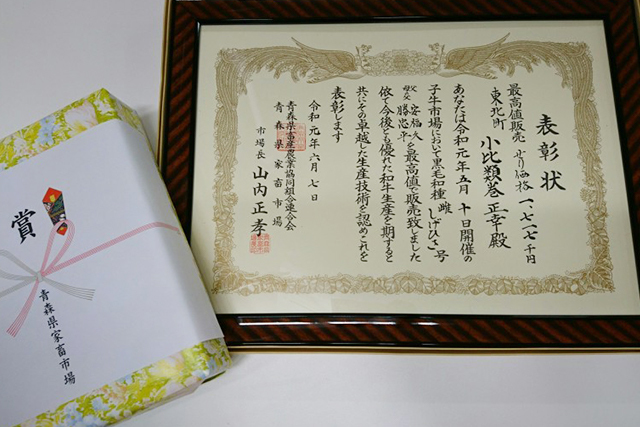 表彰状
最高値販売 せり価格 一、七一七千円
東北町 小比類巻 正幸 殿
あなたは令和元年五月十日開催の
子牛市場において黒毛和種 雌 しげひさ 号
父 安福久
母の父 勝忠平
を最高値で販売致しました
依て今後とも優れた和牛生産を期すると
共にその卓越した生産技術を認めこれを
表彰します
令和元年六月七日
青森県畜産農業協同組合連合会
青森県家畜市場
市場長 山内正孝
賞
青森県家畜市場